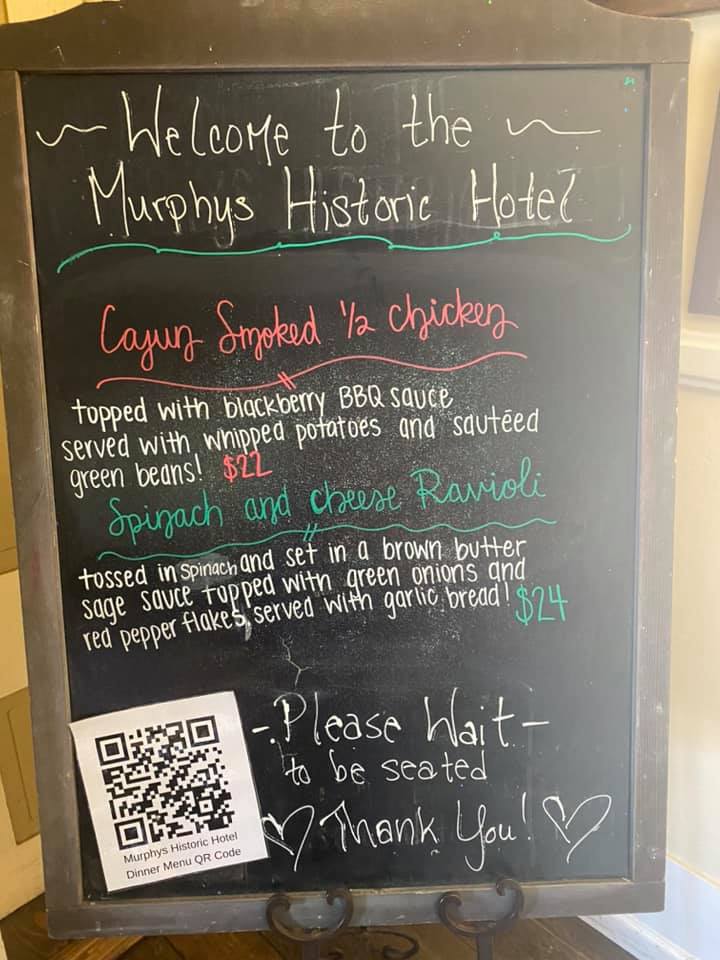 Welcome to the
Murphys Historic Hotel
Cajun Smoked 1/2 chicken
topped with blackberry BBQ sauce
served with whipped potatoes and sautéed
green beans! $22
Spinach and cheese Ravioli
tossed in spinach and set in a brown butter
sage sauce topped with green onions and
red pepper flakes, served with garlic bread! $24
-Please Wait-
to be seated
Thank You!
Murphys Historic Hotel
Dinner Menu QR Code